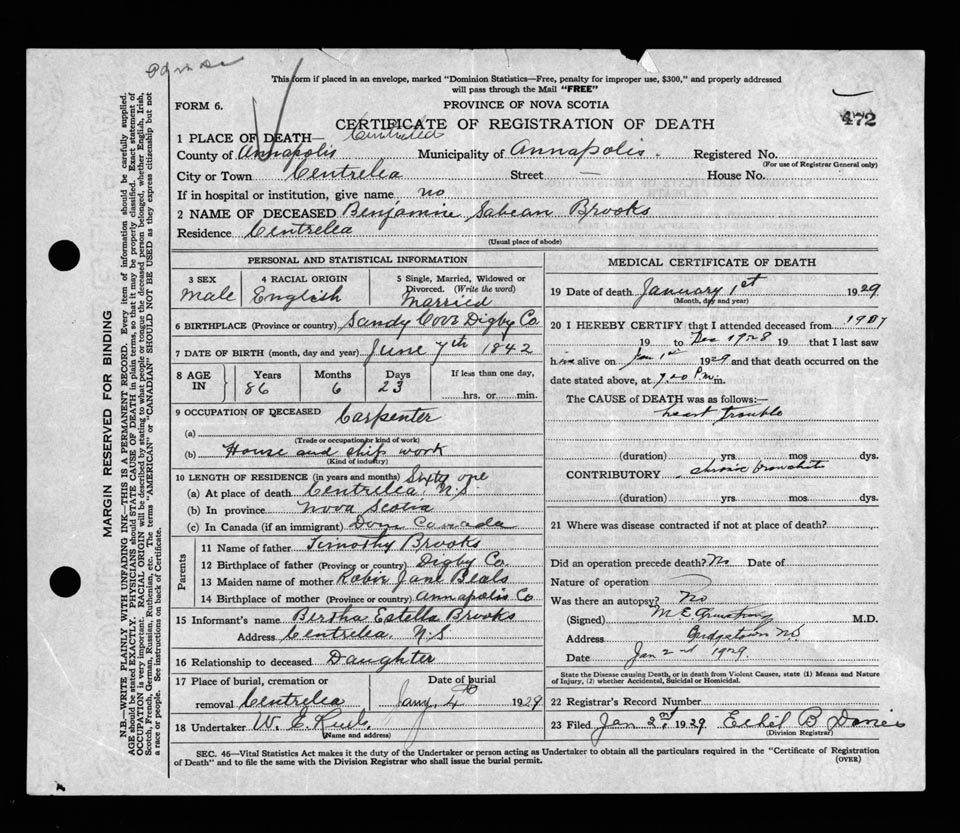 This form if placed in an envelope, marked "Dominion Statistics—Free, penalty for improper use, $300," and properly addressed
will pass through the Mail "FREE"
FORM 6.
PROVINCE OF NOVA SCOTIA
CERTIFICATE OF REGISTRATION OF DEATH
472
1 PLACE OF DEATH— Centrelea
County of Annapolis Municipality of Annapolis. Registered No.
(For use of Registrar General only)
City or Town Centrelea Street — House No.
If in hospital or institution, give name no
2 NAME OF DECEASED Benjamine Sabean Brooks
Residence Centrelea
(Usual place of abode)
PERSONAL AND STATISTICAL INFORMATION
3 SEX Male
4 RACIAL ORIGIN English
5 Single, Married, Widowed or Divorced. (Write the word) Married
6 BIRTHPLACE (Province or country) Sandy Cove Digby Co
7 DATE OF BIRTH (month, day and year) June 7th 1842
8 AGE IN Years 86 Months 6 Days 23 If less than one day, hrs. or min.
9 OCCUPATION OF DECEASED Carpenter
(a)
(Trade or occupation or kind of work)
(b) House and ship work
(Kind of industry)
10 LENGTH OF RESIDENCE (in years and months) Sixty one
(a) At place of death Centrelea, N.S.
(b) In province Nova Scotia
(c) In Canada (if an immigrant) Dom Canada
Parents
11 Name of father Timothy Brooks
12 Birthplace of father (Province or country) Digby Co
13 Maiden name of mother Jane Beals
14 Birthplace of mother (Province or country) Annapolis Co
15 Informant's name Bertha Estella Brooks
Address Centrelea, N.S.
16 Relationship to deceased Daughter
17 Place of burial, cremation or removal Centrelea Date of burial Jany. 4th 1929
18 Undertaker W. E.
(Name and address)
MEDICAL CERTIFICATE OF DEATH
19 Date of death January 1st 1929
(Month, day and year)
20 I HEREBY CERTIFY that I attended deceased from 1907
19 to Dec 1928 19 that I last saw
him alive on Jan 1st 1929 and that death occurred on
date stated above, at 7.20 P.m.
The CAUSE of DEATH was as follows:—
heart trouble
(duration) yrs. mos. dys.
CONTRIBUTORY chronic bronchitis
(duration) yrs. mos. dys.
21 Where was disease contracted if not at place of death?
Did an operation precede death? No Date of
Nature of operation
Was there an autopsy? No
(Signed) M E Armstrong M.D.
Address Bridgetown N.S.
Date Jan 2nd 1929.
State the Disease causing Death, or in death from Violent Causes, state (1) Means and Nature
of Injury, (2) whether Accidental, Suicidal or Homicidal.
22 Registrar's Record Number
23 Filed Jan 2nd. 1929 Ethel B
(Division Registrar)
SEC. 46—Vital Statistics Act makes it the duty of the Undertaker or person acting as Undertaker to obtain all the particulars required in the "Certificate of Registration
of Death" and to file the same with the Division Registrar who shall issue the burial permit.
(OVER)
MARGIN RESERVED FOR BINDING
N.B.—WRITE PLAINLY WITH UNFADING INK—THIS IS A PERMANENT RECORD. Every item of information should be carefully supplied.
AGE should be stated EXACTLY. PHYSICIANS should STATE CAUSE OF DEATH in plain terms, so that it may be properly classified. Exact statement of
OCCUPATION is very important. RACIAL ORIGIN will be described by stating to what people or tongue the deceased person belonged, whether English, Irish,
Scotch, French, German, Russian, Ruthenian, etc. The terms "AMERICAN" or "CANADIAN" SHOULD NOT BE USED as they express citizenship but not
a race or people. See instructions on back of Certificate.